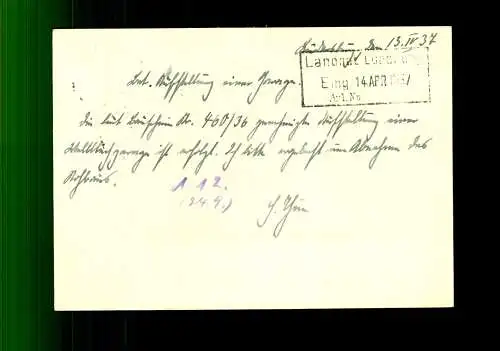 den 13.IV 37
Landrat
Eing. 14. APR. 1937
Akt. No.
Bet. Aufstellung einer Garage.
Die laut Bauschein Nr. 460/36 genehmigte Aufstellung einer
Wellblechgarage ist erfolgt. Ich bitte ergebenst um Abnahme des
Rohbaus.
1 12.
(24.4.)